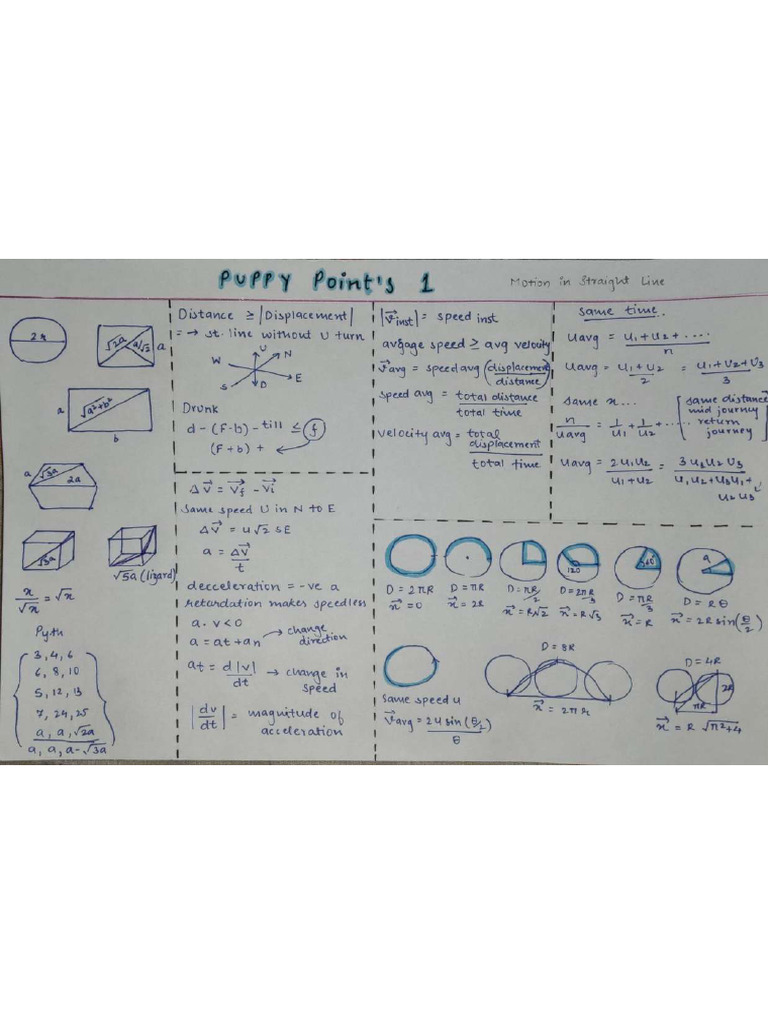 PUPPY Point's 1
Motion in Straight Line
2r
√2a
a/√2
a
a
√a²+b²
b
a
√3a
2a
√3a
√5a (lizard)
x/√x = √x
Pyth
3, 4, 6
6, 8, 10
5, 12, 13
7, 24, 25
a, a, √2a
a, a, a-√3a
Distance ≥ |Displacement|
= → st. line without U turn
U
N
W
E
S
D
Drunk
d - (F-b) - till ≤ f
(F+b) +
Δv⃗ = v⃗f - v⃗i
Same speed U in N to E
Δv⃗ = u√2 SE
a = Δv⃗/t
decceleration = -ve a
retardation makes speedless
a · v < 0
a = at + an → change direction
at = d|v|/dt → change in speed
|dv/dt| = magnitude of acceleration
|v⃗inst| = speed inst
avgage speed ≥ avg velocity
v⃗avg = speed avg (displacement/distance)
speed avg = total distance/total time
velocity avg = total displacement/total time
same time.
uavg = u1 + u2 + ..../n
uavg = u1 + u2/2 = u1 + u2 + u3/3
same x... [same distance
mid journey
return journey
n/uavg = 1/u1 + 1/u2 + .....
uavg = 2u1u2/u1+u2 = 3u1u2u3/u1u2+u3u1+u2u3
D = 2πR
x⃗ = 0
D = πR
x⃗ = 2R
D = πR/2
x⃗ = R√2
120
D = 2πR/3
x⃗ = R√3
60°
D = πR/3
x⃗ = R
a
D = Rθ
x⃗ = 2R sin(θ/2)
same speed u
v⃗avg = 2u sin(θ/2)/θ
D = 8R
x⃗ = 2πr
D = 4R
2R
πR
x⃗ = R √π²+4